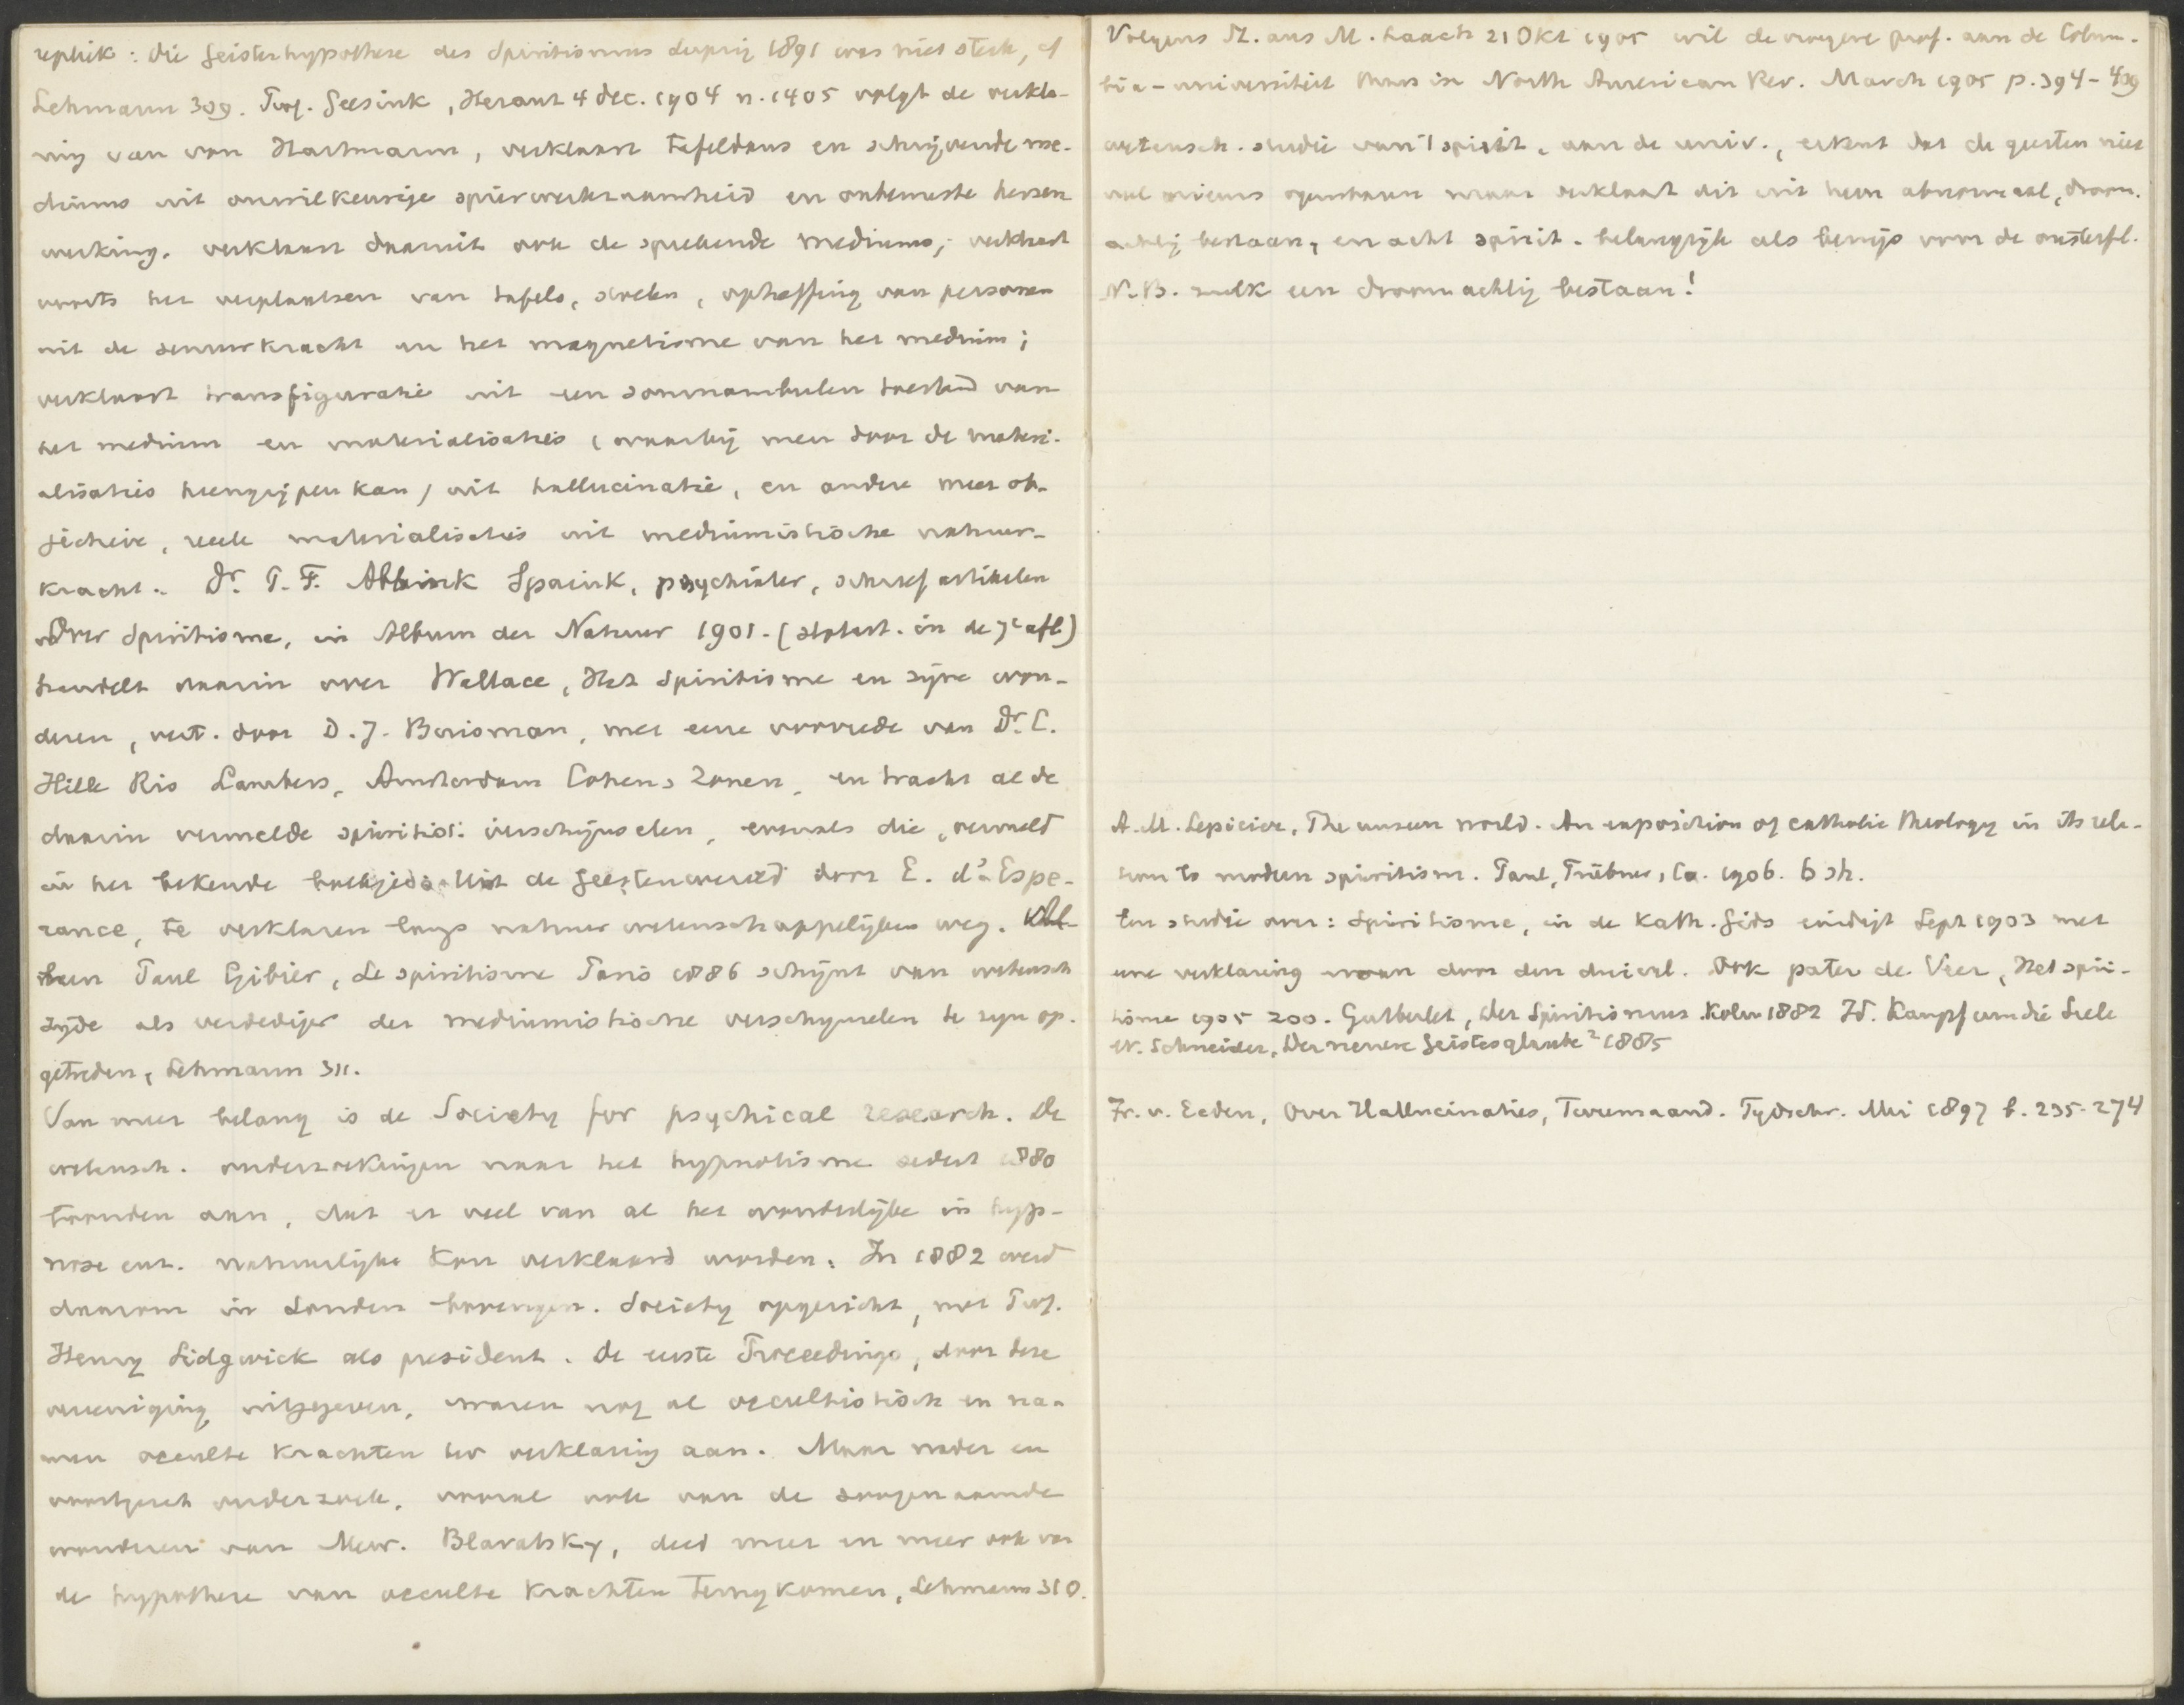 replik: Die Geisterhypothese des Spiritismus Leipzig 1891 was niet sterk, cf
Lehmann 309. Prof. Geesink, Heraut 4 dec. 1904 n. 1405 volgt de verkla-
ring van von Hartmann, verklaart tafeldans en schrijvende me-
diums uit onwillekeurige spierwerkzaamheid en onbewuste hersen
werking. verklaart daaruit ook de sprekende mediums; verklaart
voorts het verplaatsen van tafels, stoelen, opheffing van personen
uit de zenuwkracht en het magnetisme van het medium;
verklaart transfiguratie uit een somnambulen toestand van
het medium en materialisaties (waarbij men door de materi-
alisaties heengrijpen kan) uit hallucinatie, en andere meer ob-
jectieve, reele materialisaties uit mediumistische natuur-
kracht. Dr. P. F. Abbink Spaink, psychiater, schreef artikelen
over Spiritisme, in Album der Natuur 1901. (slotart. in de 7e afl)
handelt daarin over Wallace, Het Spiritisme en zijne won-
deren, vert. door D. J. Boisman, met eene voorrede van Dr. C.
Hille Ris Lambers, Amsterdam Cohen & Zonen, en tracht al de
daarin vermelde spiritist. verschijnselen, evenals die, vermeld
in het bekende boekje: Uit de Geestenwereld door E. d'Espe-
rance, te verklaren langs natuurwetenschappelijken weg.
Paul Gibier, Le spiritisme Paris 1886 schijnt van wetensch
zijde als verdediger der mediumistische verschijnselen te zijn op-
getreden, Lehmann 311.
Van meer belang is de Society for psychical research. De
wetensch. onderzoekingen naar het hypnotisme sedert 1880
toonden aan, dat er veel van al het wonderlijke in hyp-
nose enz. natuurlijke kan verklaard worden. In 1882 werd
daarom in Londen bovengen. Society opgericht, met Prof.
Henry Sidgwick als president. De eerste Proceedings, door deze
vereeniging uitgegeven, waren nog al occultistisch en na-
men occulte krachten ter verklaring aan. Maar nader en
voortgezet onderzoek, vooral ook van de zoogenaamde
wonderen van Mevr. Blavatsky, deed meer en meer ook van
de hypothese van occulte krachten terugkomen, Lehmann 310.
Volgens St. aus M. Laach 21 Okt 1905 wil de vroegere prof. aan de Colum-
bia-universiteit thans in North American Rev. March 1905 p. 394-409
wetensch. studie van 't spirit. aan de univ., erkent dat de geesten niet
veel nieuws openbaren maar verklaart dit uit hun abnormaal, droom-
achtig bestaan, en acht spirit. belangrijk als bewijs voor de onsterfl.
N.B. zulk een droomachtig bestaan!
A. M. Lepicier, The unseen world. An exposition of catholic theology in its rela-
tion to modern spiritism. Paul, Trübner, Co. 1906. 6 sh.
Een studie over: Spiritisme, in de Kath. Gids eindigt Sept 1903 met
eene verklaring ervan door den duivel. Ook pater de Veer, Het spiri-
tisme 1905 200. Gutberlet, Der Spiritismus. Koln 1882 Id. Kampf um die Seele
W. Schneider, Der neuere Geistesglaube ² 1885
Fr. v. Eeden, Over Hallucinaties, Tweemaand. Tydschr. Mei 1897 b. 235-274